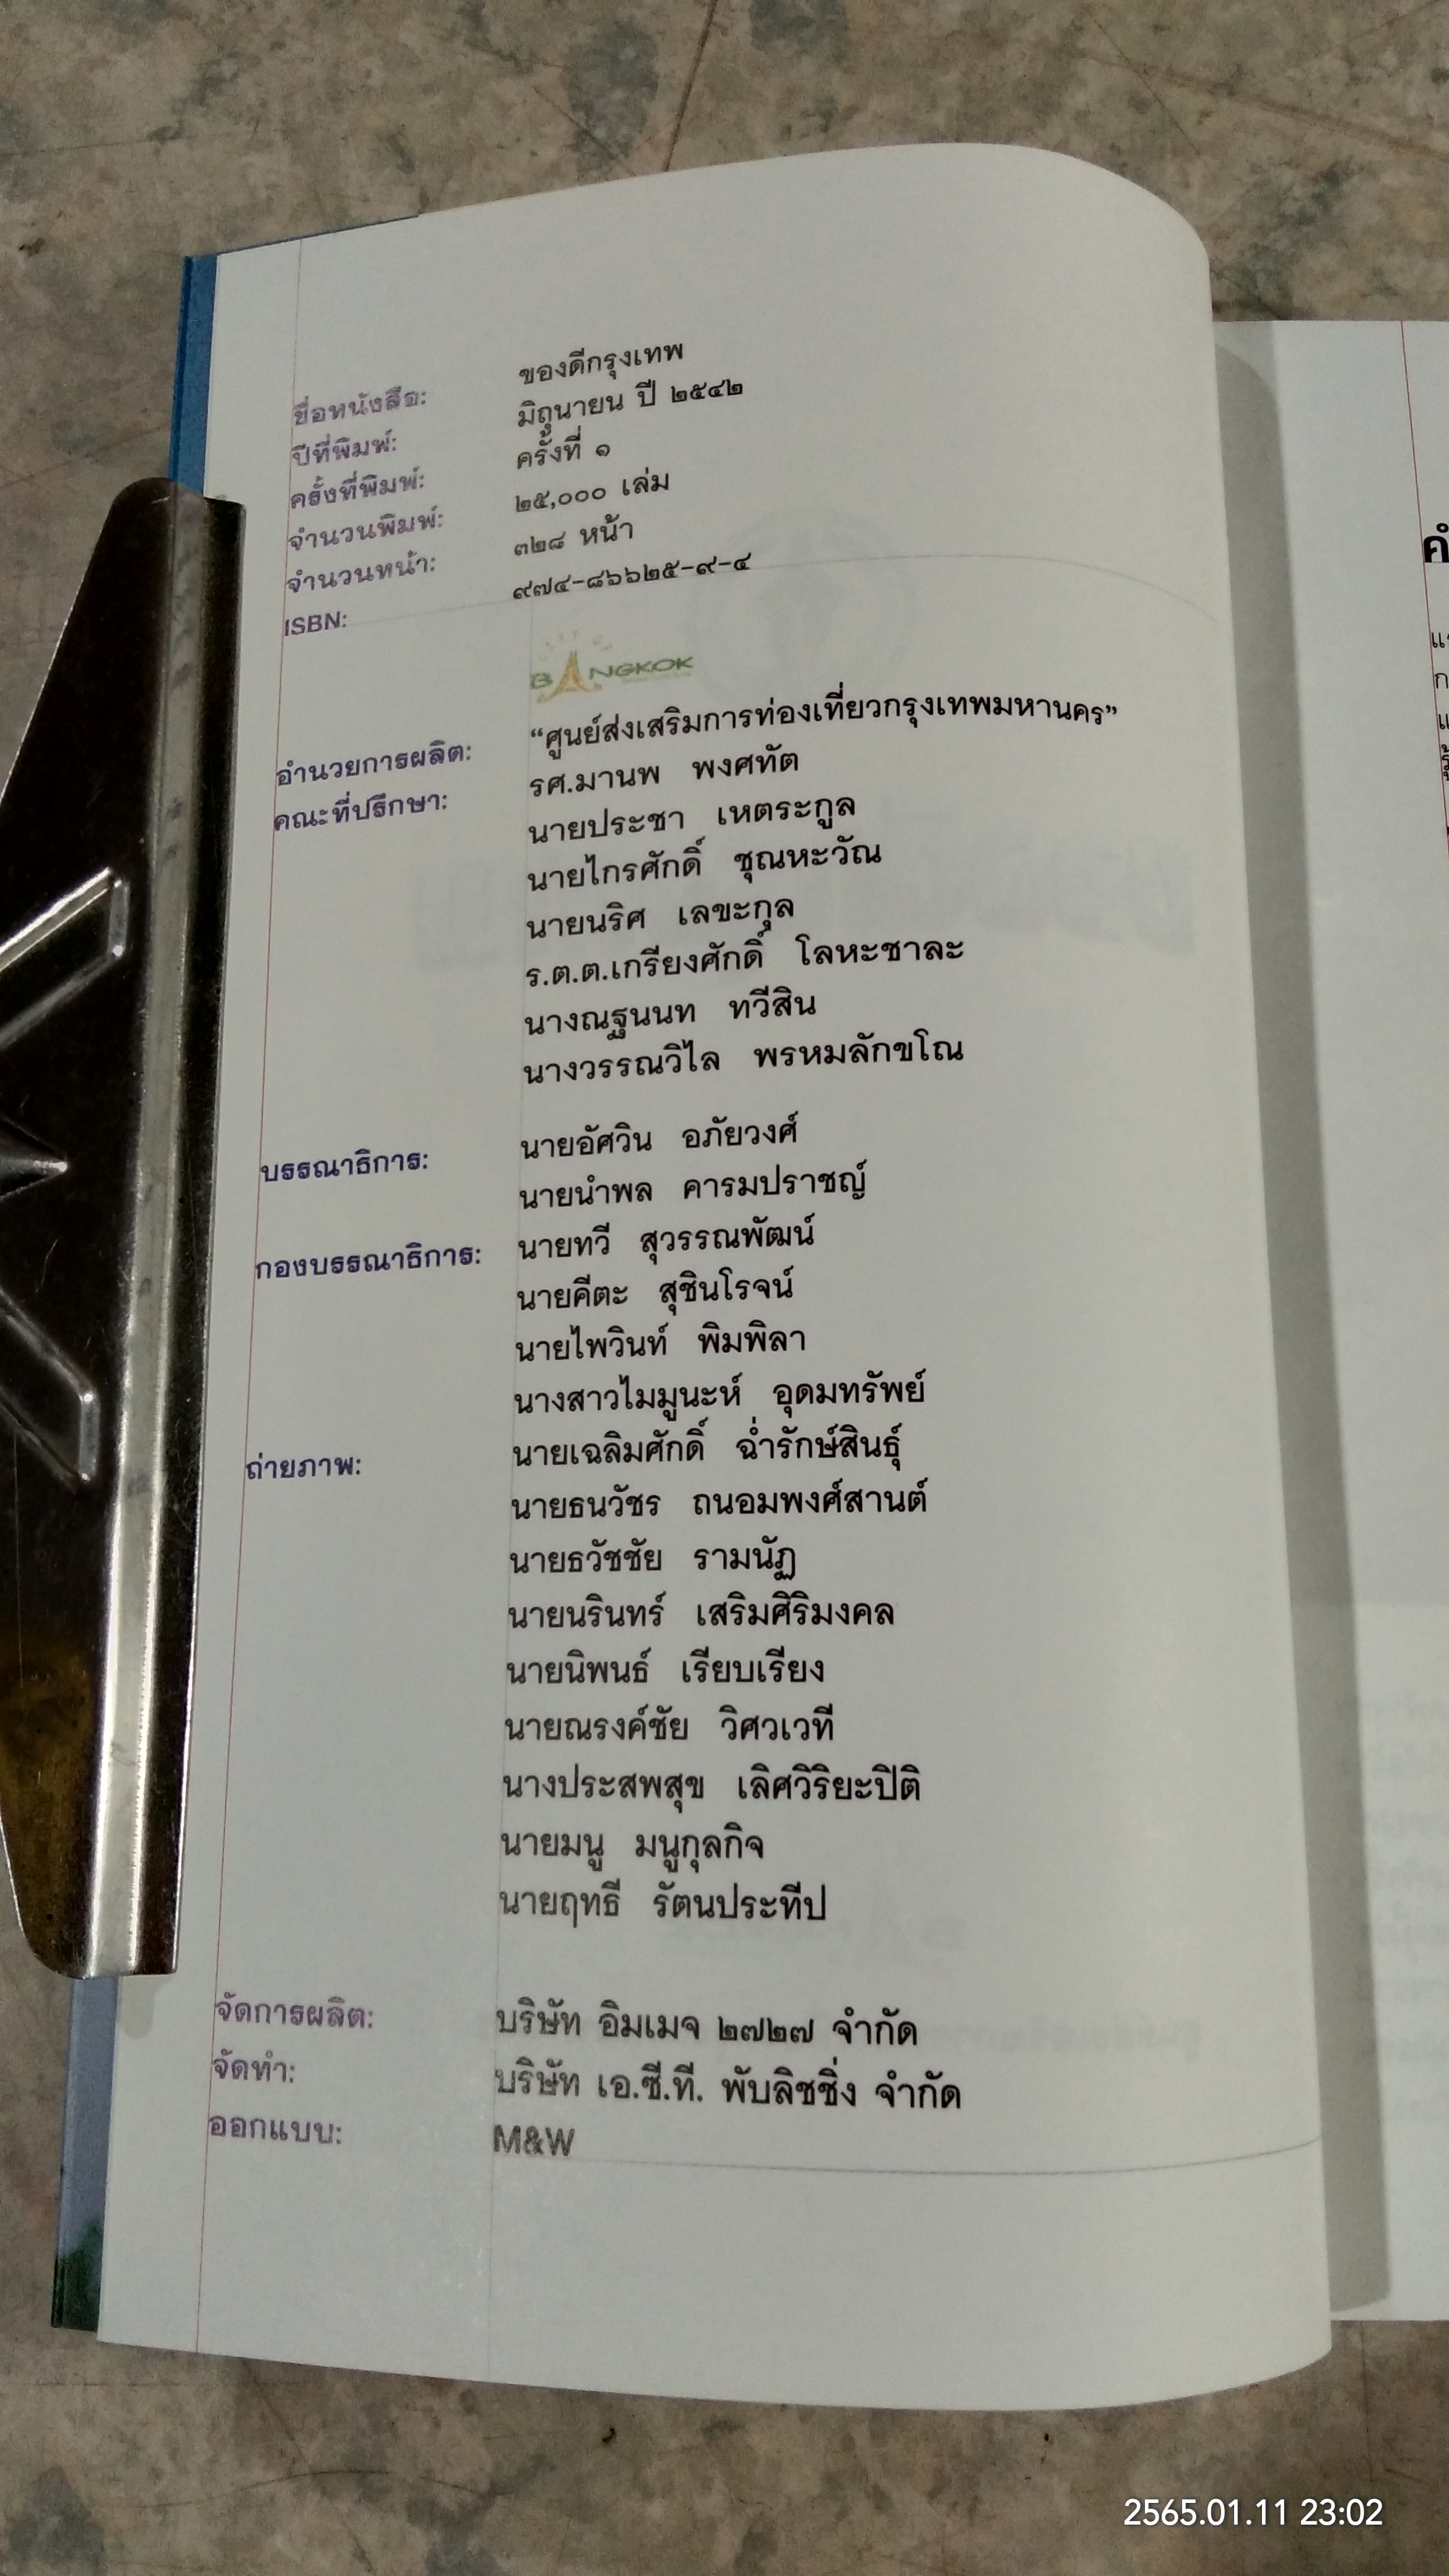 ชื่อหนังสือ: ของดีกรุงเทพ
ปีที่พิมพ์: มิถุนายน ปี ๒๕๔๒
ครั้งที่พิมพ์: ครั้งที่ ๑
จำนวนพิมพ์: ๒๕,๐๐๐ เล่ม
จำนวนหน้า: ๓๒๘ หน้า
ISBN: ๙๗๔-๘๖๖๒๕-๙-๔
BANGKOK
อำนวยการผลิต: “ศูนย์ส่งเสริมการท่องเที่ยวกรุงเทพมหานคร”
คณะที่ปรึกษา: รศ.มานพ พงศทัต
นายประชา เหตระกูล
นายไกรศักดิ์ ชุณหะวัณ
นายนริศ เลขะกุล
ร.ต.ต.เกรียงศักดิ์ โลหะชาละ
นางณฐนนท ทวีสิน
นางวรรณวิไล พรหมลักขโณ
บรรณาธิการ: นายอัศวิน อภัยวงศ์
นายนำพล คารมปราชญ์
กองบรรณาธิการ: นายทวี สุวรรณพัฒน์
นายคีตะ สุชินโรจน์
นายไพวินท์ พิมพิลา
นางสาวไมมูนะห์ อุดมทรัพย์
ถ่ายภาพ: นายเฉลิมศักดิ์ ฉ่ำรักษ์สินธุ์
นายธนวัชร ถนอมพงศ์สานต์
นายธวัชชัย รามนัฏ
นายนรินทร์ เสริมศิริมงคล
นายนิพนธ์ เรียบเรียง
นายณรงค์ชัย วิศวเวที
นางประสพสุข เลิศวิริยะปิติ
นายมนู มนูกุลกิจ
นายฤทธี รัตนประทีป
จัดการผลิต: บริษัท อิมเมจ ๒๗๒๗ จำกัด
จัดทำ: บริษัท เอ.ซี.ที. พับลิชชิ่ง จำกัด
ออกแบบ: M&W
2565.01.11 23:02